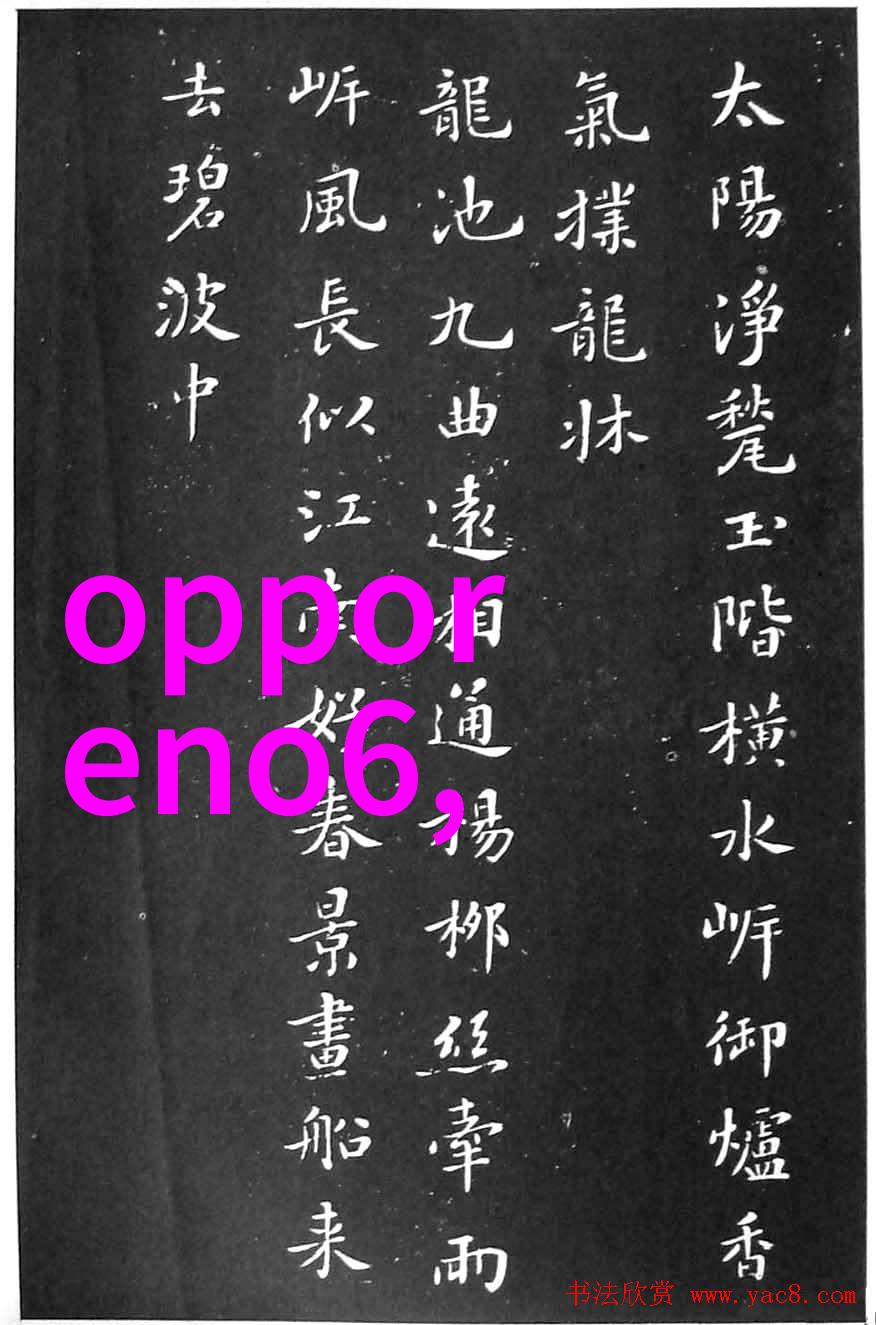 太陽淨甃玉階横水岸御爐香
氣撲龍牀
龍池九曲遠相通楊柳絲牽兩
岸風長似江南好春景畫船来
去碧波中
oppor
eno6,
书法欣赏 www.yac8.com